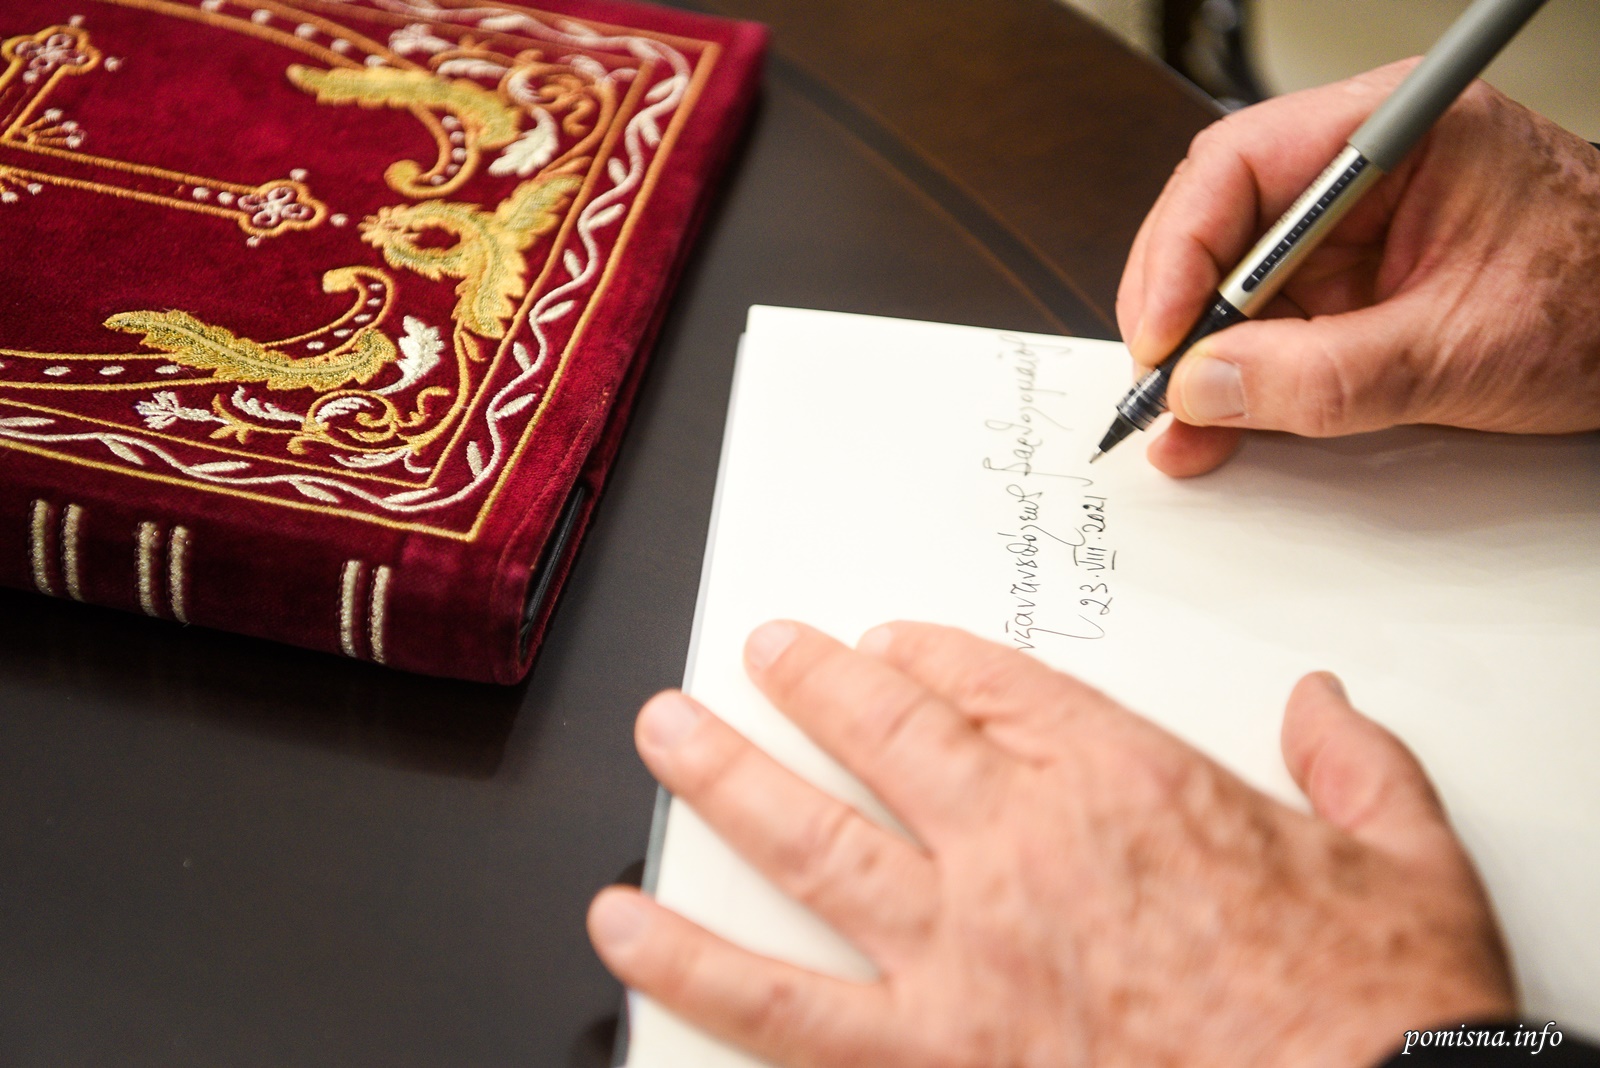 Κωνσταντινουπόλεως Βαρθολομαῖος
23·VIII·2021
pomisna.info